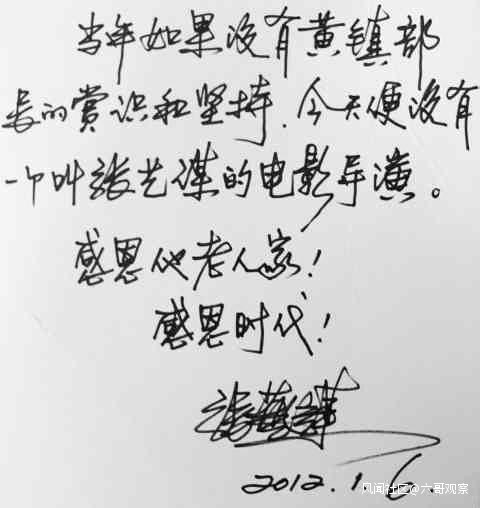 当年如果没有黄镇部
长的赏识和坚持.今天便没有
一个叫张艺谋的电影导演。
感恩他老人家！
感恩时代！
张艺谋
2012.1.6.
风闻社区@六哥观察